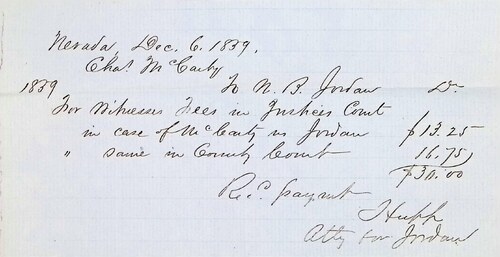 Nevada, Dec. 6. 1859.
Chas. McCarty
1859 To N. B. Jordan Dr
For Witnesses Fees in Justices Court
in case of McCarty vs Jordan $13.25
" same in County Court 16.75
$30.00
Recd. paymt
Hupp
Atty for Jordan